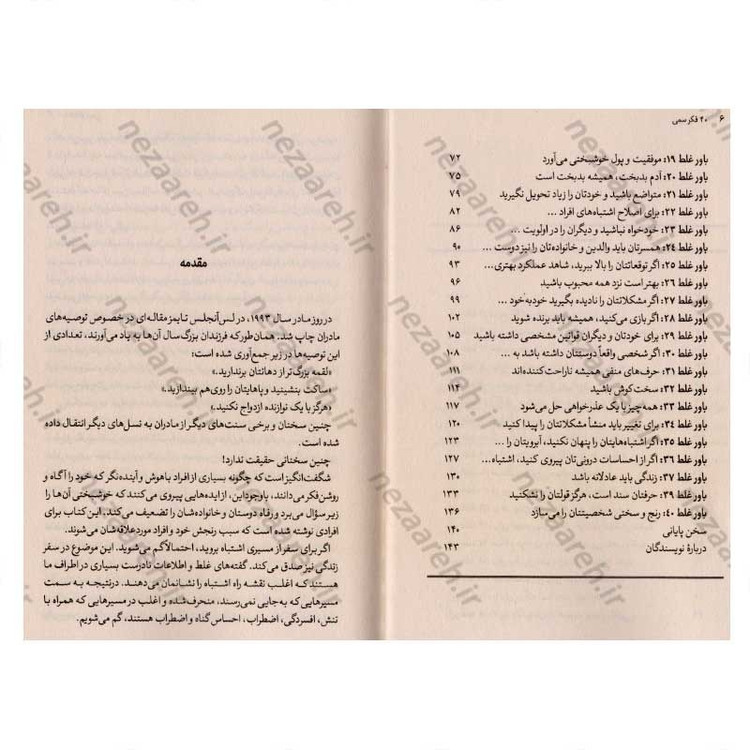 ۶ ۴۰ فکر سمی
باور غلط ۱۹: موفقیت و پول خوشبختی می‌آورد ۷۲
باور غلط ۲۰: آدم بدبخت، همیشه بدبخت است ۷۵
باور غلط ۲۱: متواضع باشید و خودتان را زیاد تحویل نگیرید ۷۹
باور غلط ۲۲: برای اصلاح اشتباه‌های افراد ... ۸۲
باور غلط ۲۳: خودخواه نباشید و دیگران را در اولویت ... ۸۶
باور غلط ۲۴: همسرتان باید والدین و خانواده‌تان را نیز دوست ... ۹۰
باور غلط ۲۵: اگر توقعاتتان را بالا ببرید، شاهد عملکرد بهتری ... ۹۳
باور غلط ۲۶: بهتر است نزد همه محبوب باشید ۹۶
باور غلط ۲۷: اگر مشکلاتتان را نادیده بگیرید خودبه‌خود ... ۹۹
باور غلط ۲۸: اگر بازی می‌کنید، همیشه باید برنده شوید ۱۰۲
باور غلط ۲۹: برای خودتان و دیگران قوانین مشخصی داشته باشید ۱۰۵
باور غلط ۳۰: اگر شخصی واقعاً دوستتان داشته باشد به ... ۱۰۸
باور غلط ۳۱: حرف‌های منفی همیشه ناراحت‌کننده‌اند ۱۱۱
باور غلط ۳۲: سخت‌کوش باشید ۱۱۴
باور غلط ۳۳: همه‌چیز با یک عذرخواهی حل می‌شود ۱۱۷
باور غلط ۳۴: برای تغییر باید منشأ مشکلاتتان را پیدا کنید ۱۲۰
باور غلط ۳۵: اگر اشتباه‌هایتان را پنهان نکنید، آبرویتان را ... ۱۲۳
باور غلط ۳۶: اگر از احساسات درونی‌تان پیروی کنید، اشتباه... ۱۲۷
باور غلط ۳۷: زندگی باید عادلانه باشد ۱۳۰
باور غلط ۳۹: حرفتان سند است، هرگز قولتان را نشکنید ۱۳۳
باور غلط ۴۰: رنج و سختی شخصیتتان را می‌سازد ۱۳۶
سخن پایانی ۱۴۰
دربارهٔ نویسندگان ۱۴۳
مقدمه
در روز مادر سال ۱۹۹۳، در لس‌آنجلس تایمز مقاله‌ای در خصوص توصیه‌های
مادران چاپ شد. همان‌طور که فرزندان بزرگ‌سال آن‌ها به یاد می‌آورند، تعدادی از
این توصیه‌ها در زیر جمع‌آوری شده است:
«لقمه بزرگ‌تر از دهانتان برندارید.»
«ساکت بنشینید و پاهایتان را روی هم بیندازید.»
«هرگز با یک نوازنده ازدواج نکنید.»
چنین سخنان و برخی سنت‌های دیگر از مادران به نسل‌های دیگر انتقال داده
شده است.
چنین سخنانی حقیقت ندارد!
شگفت‌انگیز است که چگونه بسیاری از افراد باهوش و آینده‌نگر که خود را آگاه و
روشن‌فکر می‌دانند، باوجوداین، از ایده‌هایی پیروی می‌کنند که خوشبختی آن‌ها را
زیر سؤال می‌برد و رفاه دوستان و خانواده‌شان را تضعیف می‌کند، این کتاب برای
افرادی نوشته شده است که سبب رنجش خود و افراد موردعلاقه‌شان می‌شوند.
اگر برای سفر از مسیری اشتباه بروید، احتمالاً گم می‌شوید. این موضوع در سفر
زندگی نیز صدق می‌کند. گفته‌های غلط و اطلاعات نادرست بسیاری در اطراف ما
هستند که اغلب نقشه راه اشتباه را نشانمان می‌دهند. درنتیجه به سمت
مسیرهایی که به‌جایی نمی‌رسند، منحرف‌شده و اغلب در مسیرهایی که همراه با
تنش، افسردگی، اضطراب، احساس گناه و اضطراب هستند، گم می‌شویم.
nezaareh.ir
nezaareh.ir
nezaareh.ir
nezaareh.ir
nezaareh.ir
nezaareh.ir